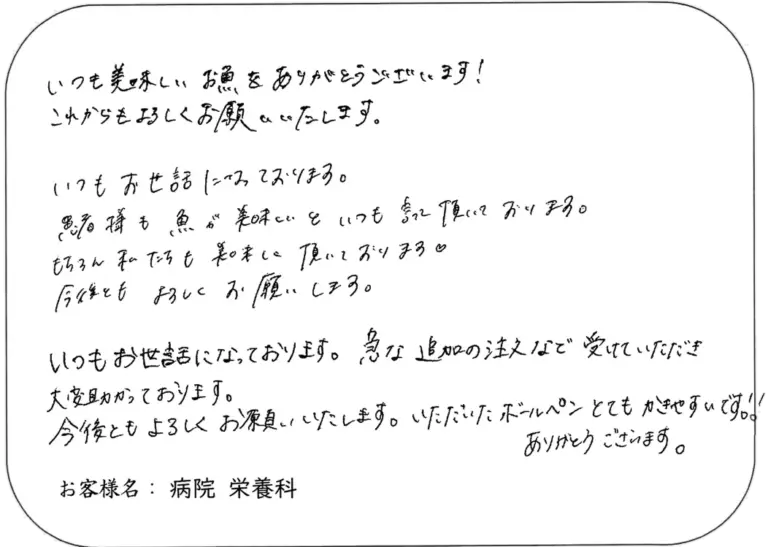 いつも美味しいお魚をありがとうございます!
これからもよろしくお願いいたします。
いつもお世話になっております。
患者様も魚が美味しいといつも言って頂いております。
もちろん私たちも美味しく頂いております♡
今後ともよろしくお願いします。
いつもお世話になっております。急な追加の注文なで受けていただき
大変助かっております。
今後ともよろしくお願いいたします。いただいたボールペンとてもかきやすいです!!
ありがとうございます。
お客様名: 病院 栄養科